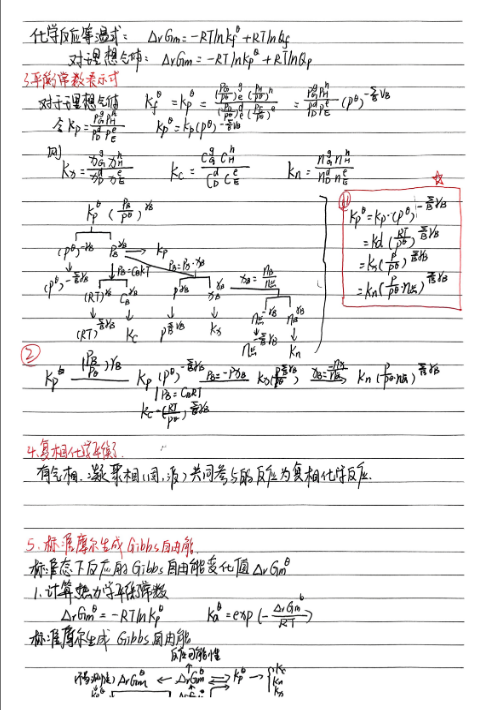 化学反应等温式: ΔrGm = -RTlnKf^θ + RTlnQf
对理想气体: ΔrGm = -RTlnKp^θ + RTlnQp
3.平衡常数表示式
对于理想气体 Kf^θ = Kp^θ = (pG/p^θ)^g (pH/p^θ)^h / (pD/p^θ)^d (pE/p^θ)^e = pG^g pH^h / pD^d pE^e (p^θ)^-ΣνB
令 Kp = pG^g pH^h / pD^d pE^e Kp^θ = Kp(p^θ)^-ΣνB
则
Kx = xG^g xH^h / xD^d xE^e Kc = cG^g cH^h / cD^d cE^e Kn = nG^g nH^h / nD^d nE^e
Kp^θ (pB/p^θ)^νB
(p^θ)^-νB pB^νB → Kp
(p^θ)^-ΣνB pB = cBRT pB = p·xB
(RT)^νB cB^νB p^νB xB^νB xB = nB/n总
(RT)^ΣνB Kc p^ΣνB Kx n总^-νB nB^νB
n总^-ΣνB Kn
① ☆
Kp^θ = Kp·(p^θ)^-ΣνB
= Kc(RT/p^θ)^ΣνB
= Kx(p/p^θ)^ΣνB
= Kn(p/p^θ·n总)^ΣνB
②
Kp^θ (pB/p^θ)^νB Kp(p^θ)^-ΣνB pB = pxB Kx(p/p^θ)^ΣνB xB = nB/n总 Kn(p/p^θ·n总)^ΣνB
pB = cBRT
Kc(RT/p^θ)^ΣνB
4.复相化学平衡
有气相,凝聚相(固,液)共同参与的反应为复相化学反应.
5.标准摩尔生成Gibbs自由能
标准态下反应的Gibbs自由能变化值ΔrGm^θ
1.计算热力学平衡常数
ΔrGm^θ = -RTlnKp^θ Ka^θ = exp(-ΔrGm^θ/RT)
标准摩尔生成Gibbs自由能
反应可能性
ΔrGm^θ ← ΔrGm^θ ⇌ Kp^θ → { Kc
Kn
Kx